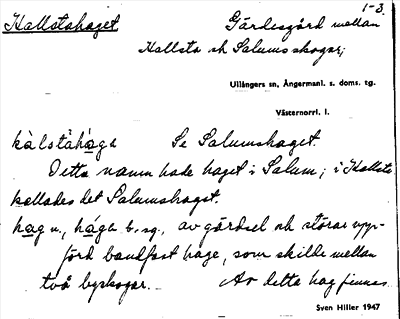 1-3.
Kallstahaget Gärdesgård mellan
Kallsta och Salums skogar;
Ullångers sn, Ångermanl. s. doms. tg.
Västernorrl. l.
kàlstàhága Se Salumshaget.
Detta namn hade haget i Salum; i Kallsta
kallades det Salumshaget.
hag n., hága b. sg., av gärdsel och störar upp-
förd bandfast hage, som skilde mellan
två byskogar. Av detta hag finnes
Sven Hiller 1947